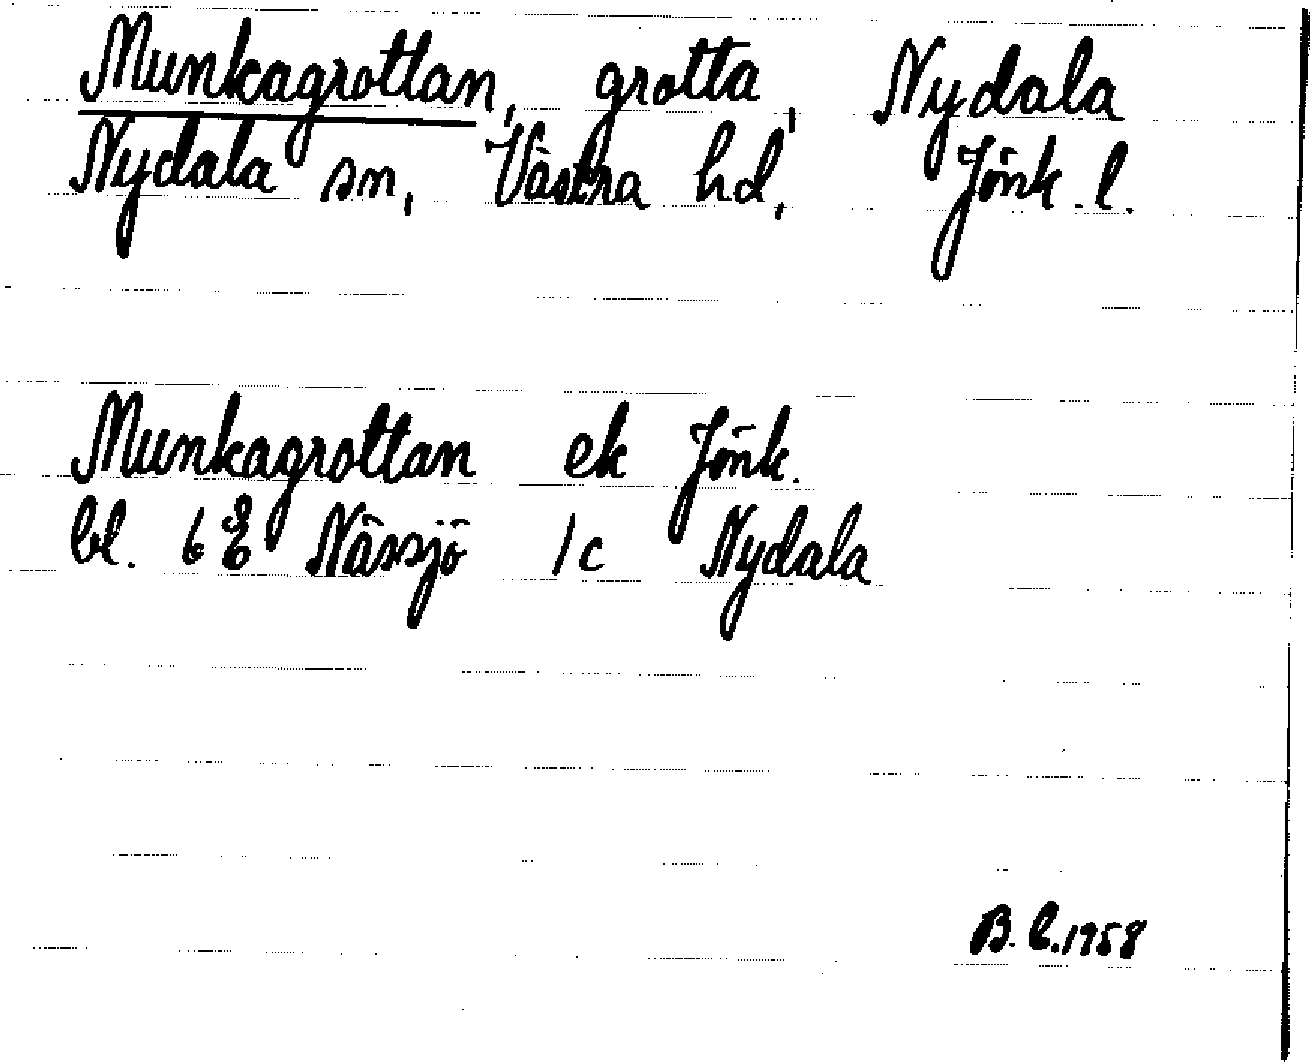 Munkagrottan, grotta, Nydala
Nydala sn, Västra hd, Jönk. l.
Munkagrottan ek Jönk.
bl. 6E Nässjö 1c Nydala
B. C. 1958